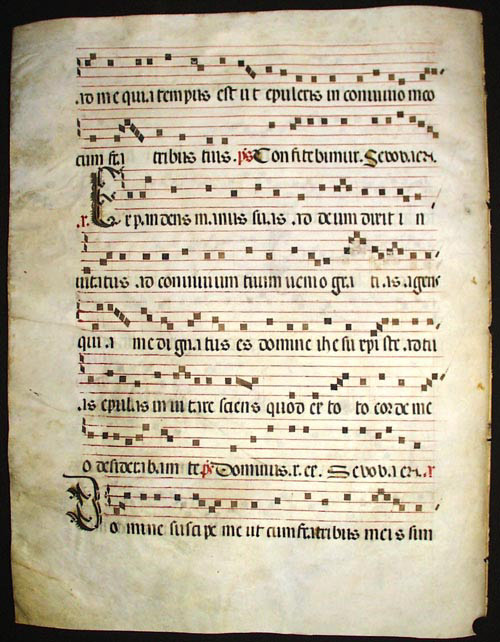 ad me quia tempus est ut epuleris in convivio meo
cum fratribus tuis. ps Confitebimur. Sevovaen.
Expandens manus suas ad deum dixit in
vitatus ad convivium tuum venio gratias agens
quia me dignatus es domine ihesu xpiste ad tu
as epulas invitare sciens quod ex toto corde me
o desiderabam te. ps Dominus. r. ex. Sevovaen. a
Domine suscipe me ut cum fratribus meis sim